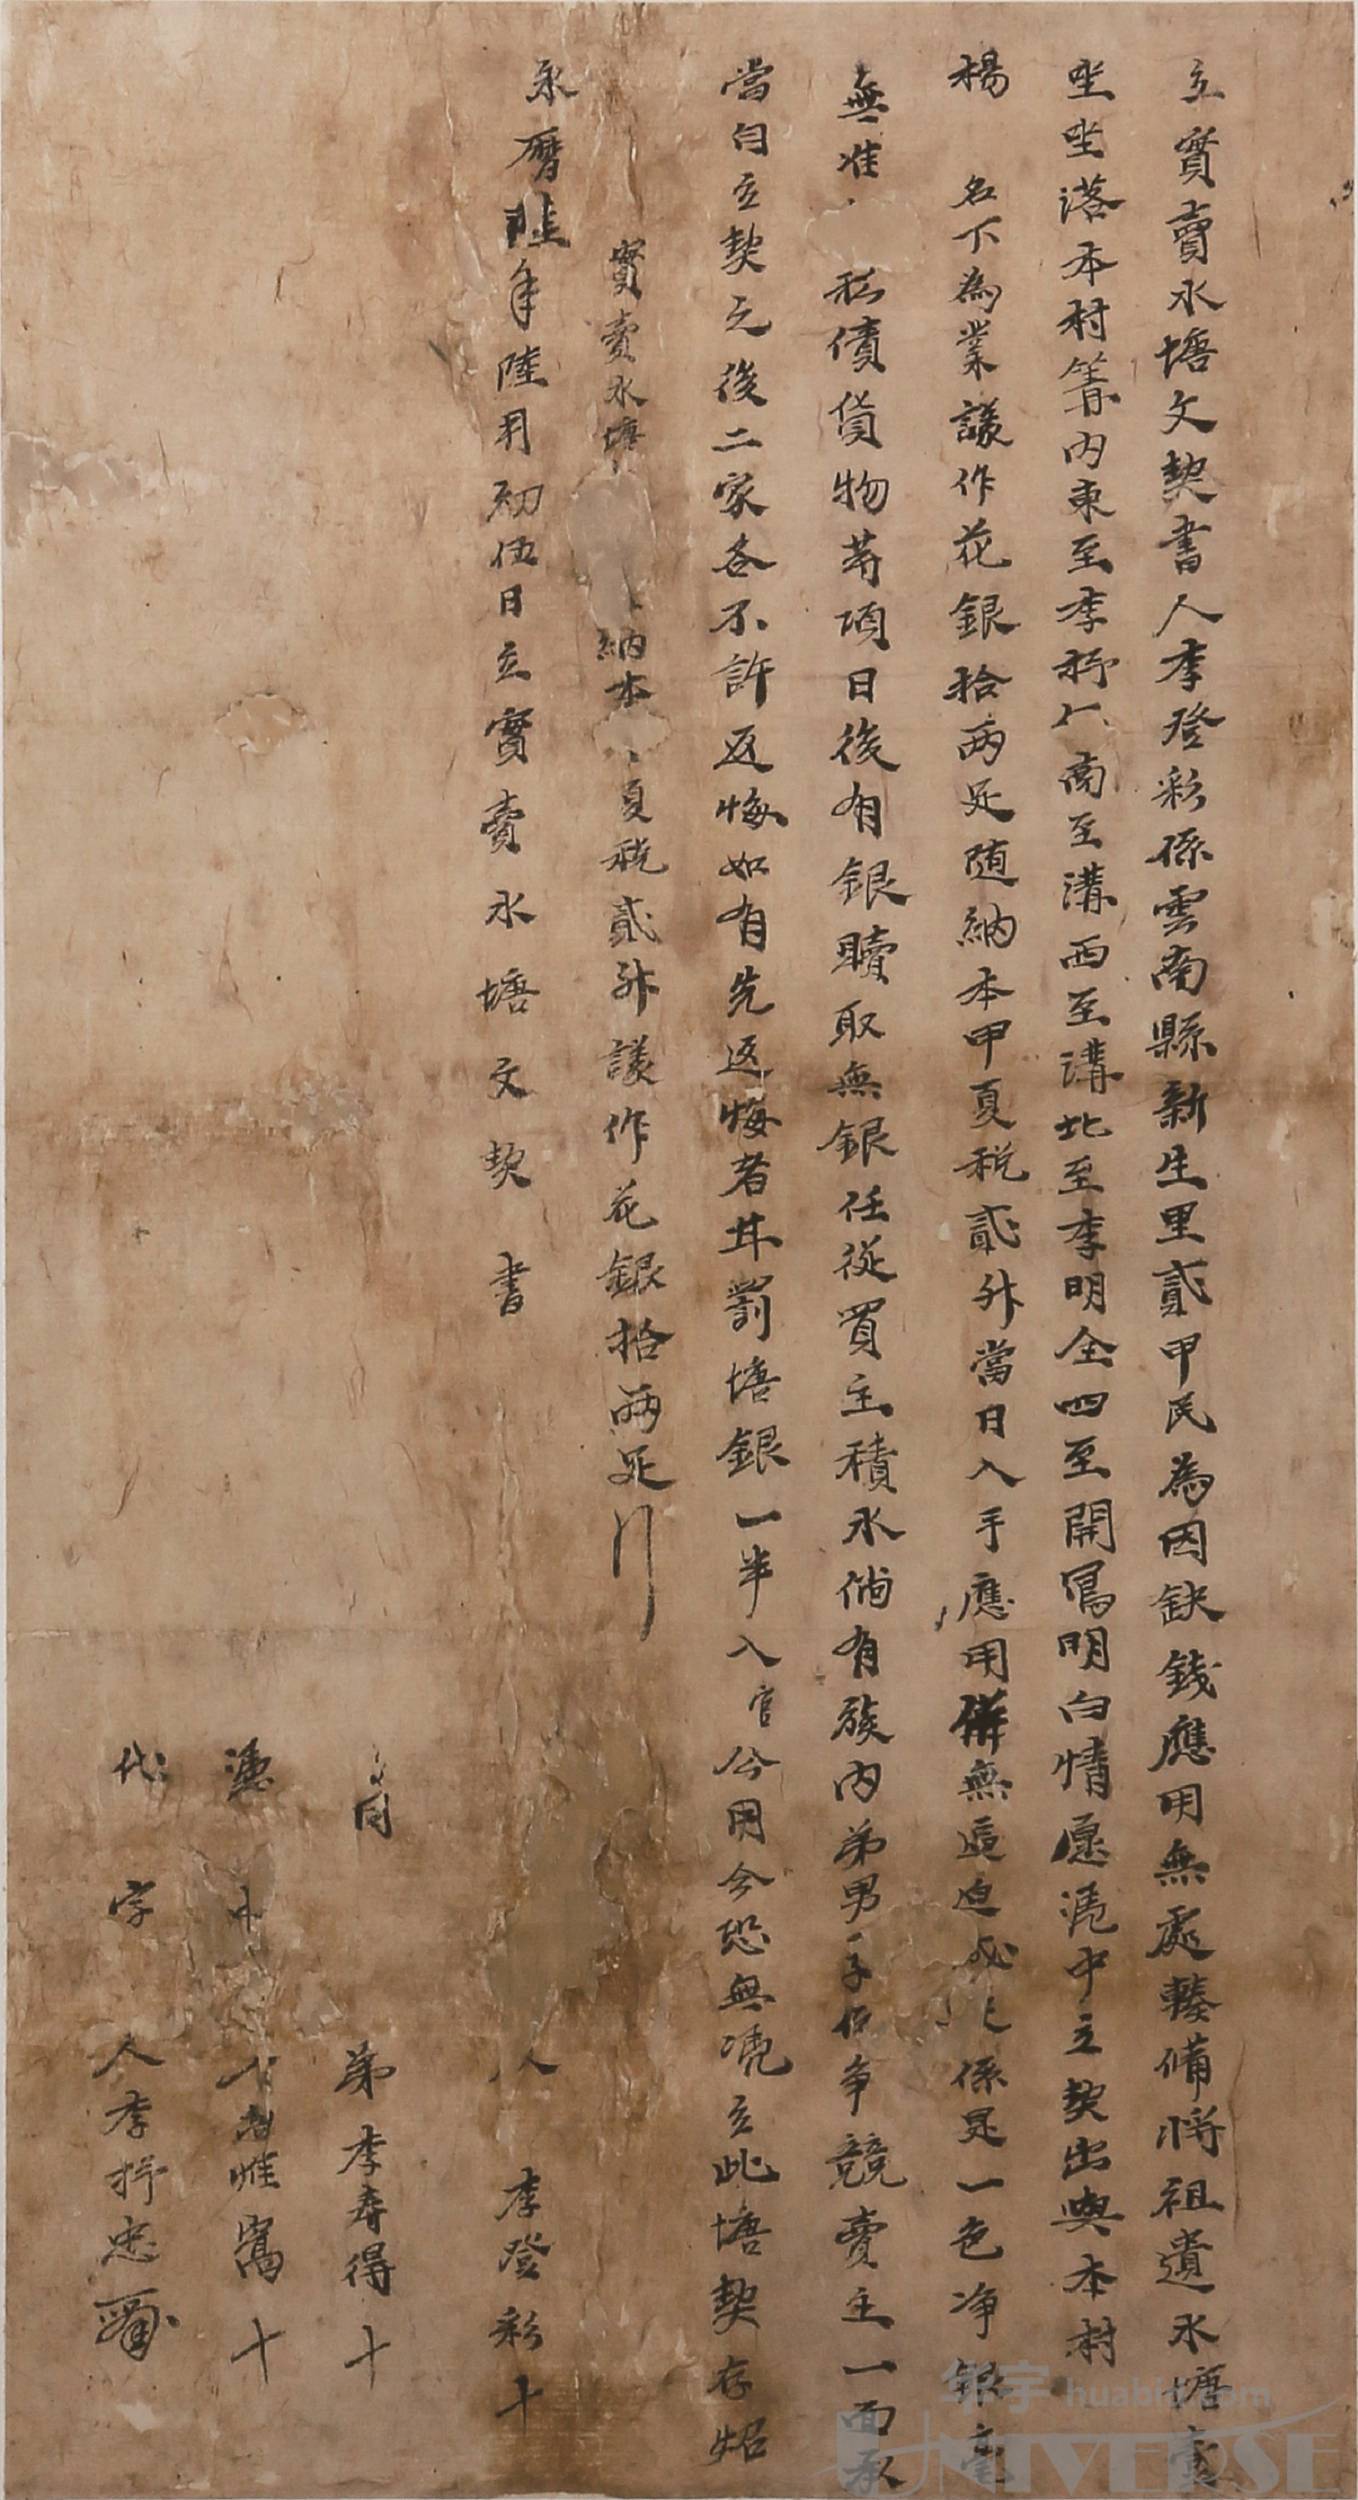 立實賣水塘文契書人李登彩係雲南縣新生里貳甲民為因缺錢應用無處輳備將祖遺水塘壹
坐坐落本村箐内東至李抒南至溝西至溝北至李明全四至開寫明白情愿憑中立契出與本村
楊名下為業議作花銀拾兩足随納本甲夏稅貳升當日入手應用併無逼迫成係是一色净銀毫
無准私債貨物等項日後有銀贖取無銀任從買主積水倘有族内弟男子侄争競賣主一面承
當自立契之後二家各不許返悔如有先返悔者甘罰塘銀一半入官公用今恐無凭立此塘契存炤
實賣水塘納本夏稅貳升議作花銀拾兩足
永曆陸年陸月初伍日立實賣水塘文契書
人李登彩十
同弟李寿得十
憑惟寫十
代字人李抒忠
华宇 huabid.com
UNIVERSE